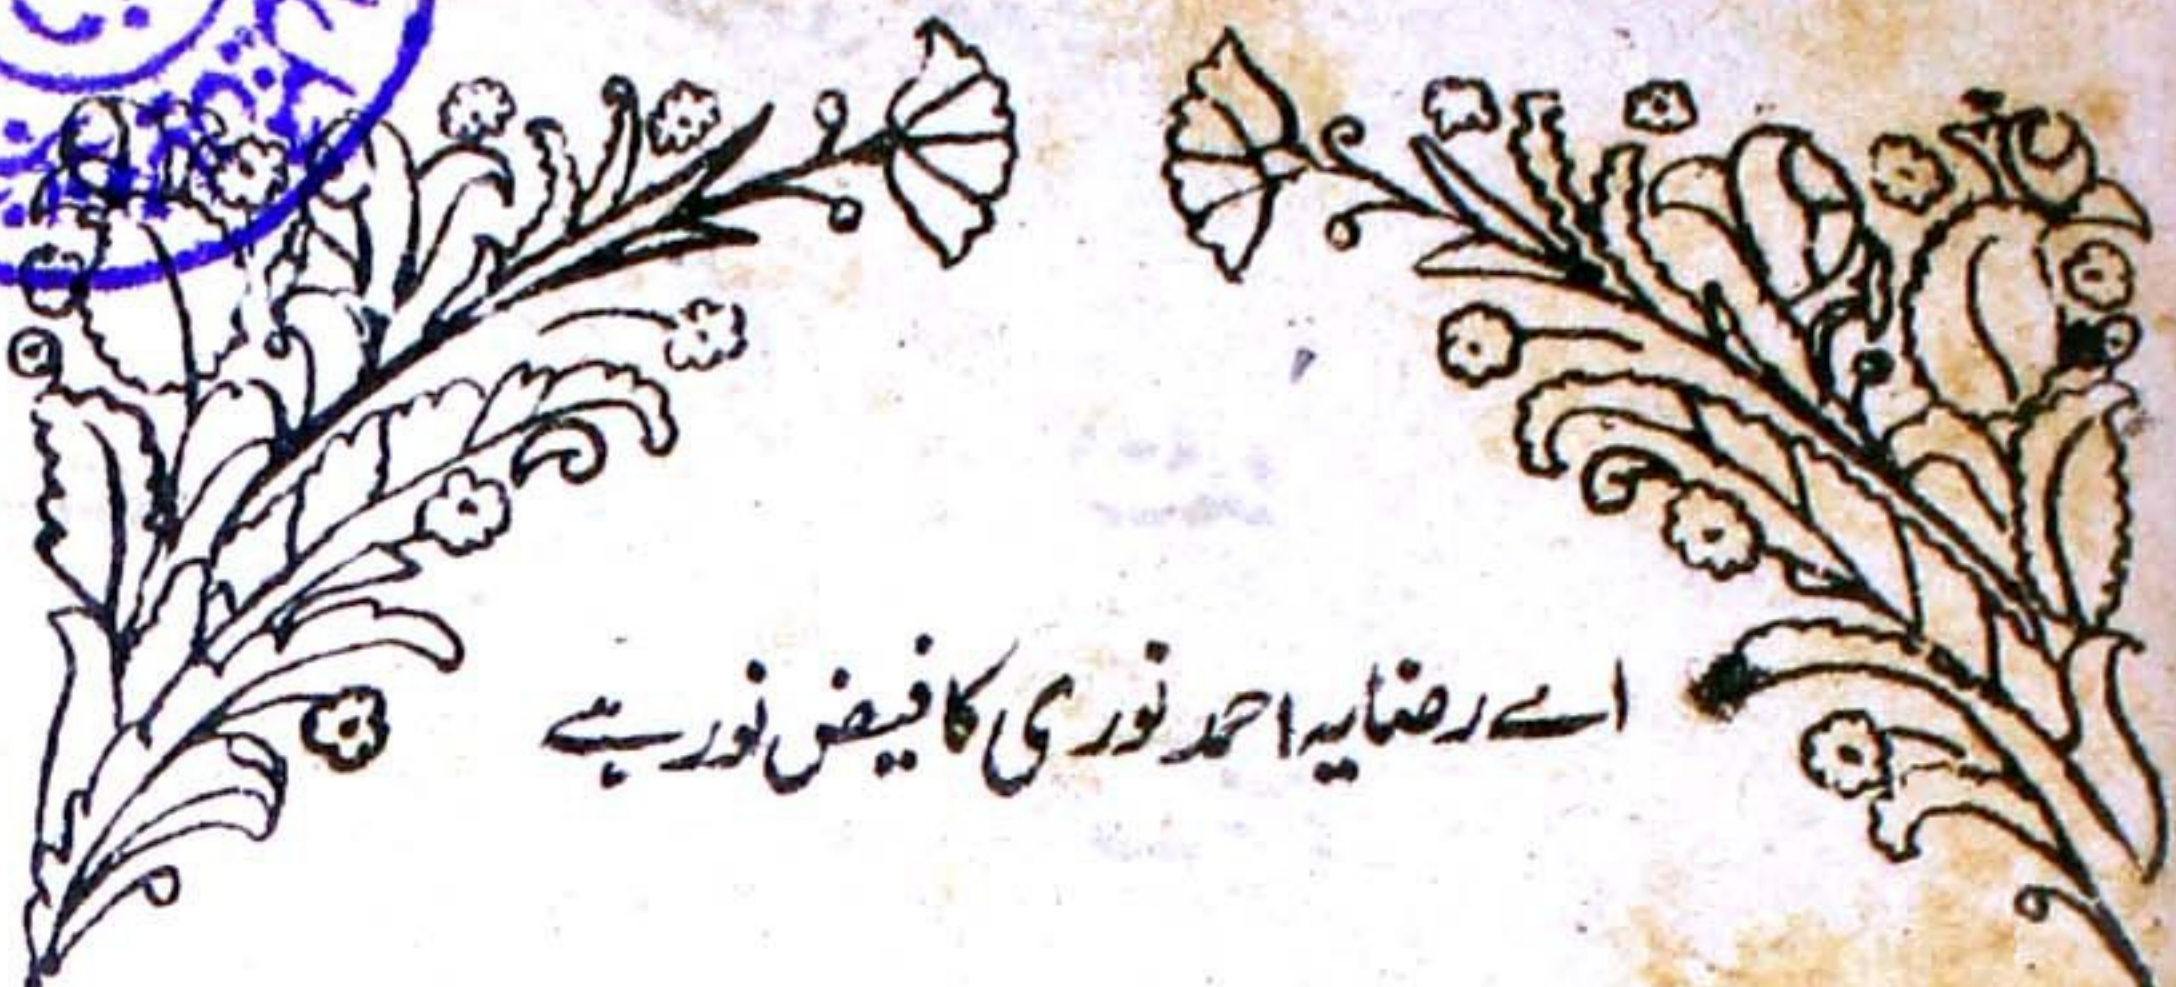 اے رضا یہ احمد نوری کا فیض نور ہے